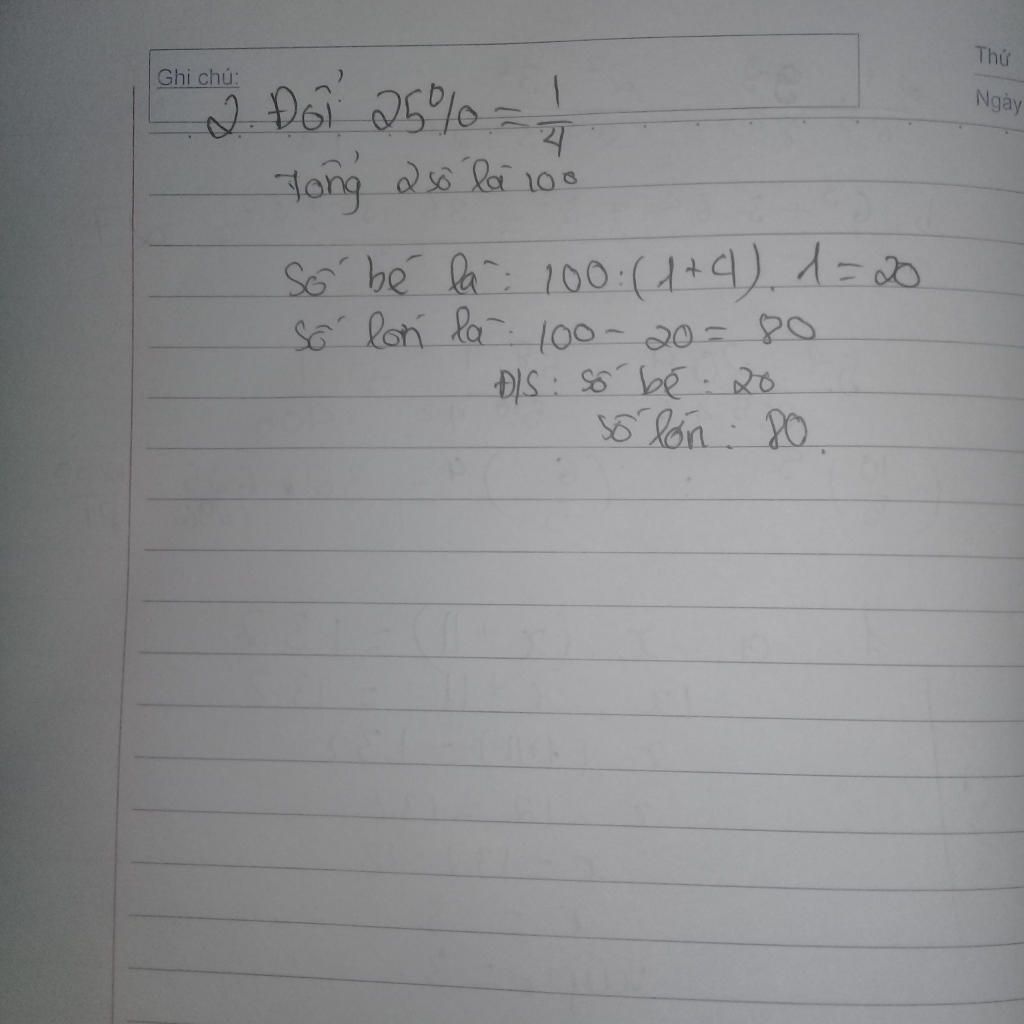 Thứ
Ghi chú:
Ngày
2. Đổi 25% = 1/4
Tổng 2 số là 100
Số bé là: 100:(1+4). 1 = 20
Số lớn là: 100 - 20 = 80
Đ/S: số bé: 20
số lớn: 80.